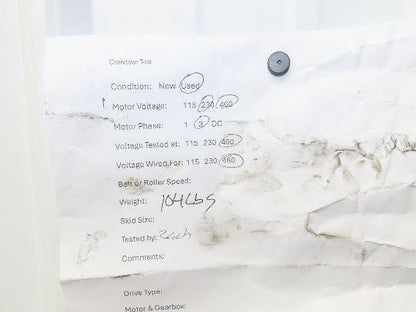 Conveyor Test
Condition: New Used
Motor Voltage: 115 230 460
Motor Phase: 1 3 DC
Voltage Tested at: 115 230 460
Voltage Wired For: 115 230 460
Belt or Roller Speed:
Weight: 104Lbs
Skid Size:
Tested by:
Comments:
Drive Type:
Motor & Gearbox: